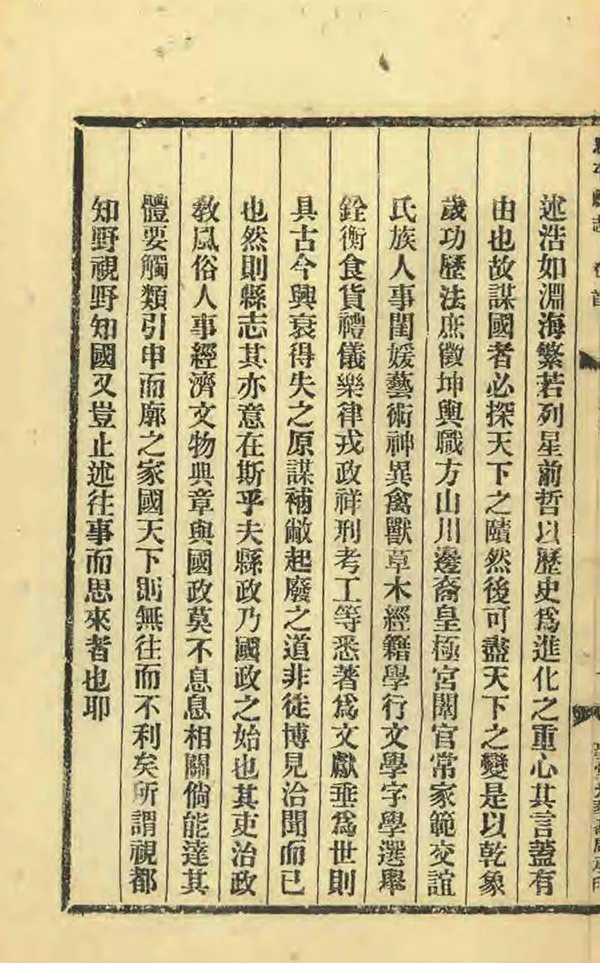 述浩如淵海繁若列星前哲以歷史爲進化之重心其言蓋有
由也故謀國者必探天下之賾然後可盡天下之變是以乾象
歲功歷法庶徵坤輿職方山川邊裔皇極宮闈官常家範交誼
氏族人事閨媛藝術神異禽獸草木經籍學行文學字學選舉
銓衡食貨禮儀樂律戎政祥刑考工等悉著爲文獻垂爲世則
具古今興衰得失之原謀補敝起廢之道非徒博見洽聞而已
也然則縣志其亦意在斯乎夫縣政乃國政之始也其吏治政
敎風俗人事經濟文物典章與國政莫不息息相關倘能達其
體要觸類引申而廓之家國天下則無往而不利矣所謂視都
知野視野知國又豈止述往事而思來者也耶